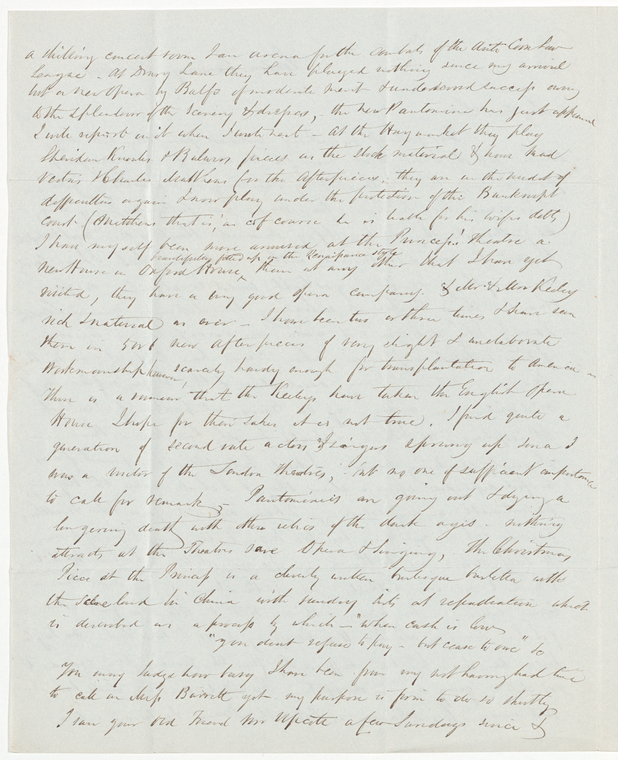 a shilling concert room & an arena for the combats of the Anti Corn Law
League. At Drury Lane they have played nothing since my arrival
but a new Opera by Balfe of moderate merit & undeserved success owing
to the splendour of the Scenery & dresses, - the new Pantomime has just appeared
I will report on it when I write next - At the Haymarket they play
Sheridan Knowles & Bulwers pieces as the stock material & have Mad
Vestris & Charles Mathews for the afterpieces. they are in the midst of
difficulties again & now play under the protection of the Bankrupt
Court (Mathews that is, as of course he is liable for his wifes debts)
I have myself been more amused at the Princess' Theatre a
beautifully fitted up in the Renaissance style
new House in Oxford than at any other that I have yet
visited, they have a very good opera company & Mr & Mrs Keeley
rich & natural as ever - I have been two or three times & have seen
them in 5 or 6 new afterpieces of very slight & unelaborate
workmanship scarcely hardy enough for transplantation to America -
There is a rumour that the Keeleys have taken the English Opera
House I hope for their sakes it is not true. I find quite a
generation of second rate actors & singers sprung up since I
was a visitor of the London Theatres, - but no one of sufficient importance
to call for remark, - Pantomimes are going out & dying a
lingering death with other relics of the dark ages - nothing
attracts at the Theatres save Opera & Singing, The Christmas
Piece at the Princess is a cleverly written burlesque burletta with
the scene laid in China with sundry hits at repudiation which
is described as a process by which - "when cash is low
"you dont refuse to pay - but cease to owe" &c
You may judge how busy I have been from my not having had time
to call on Miss Barrett yet - my purpose is firm to do so shortly
I saw your old Friend Mr Upcott a few Sundays since &